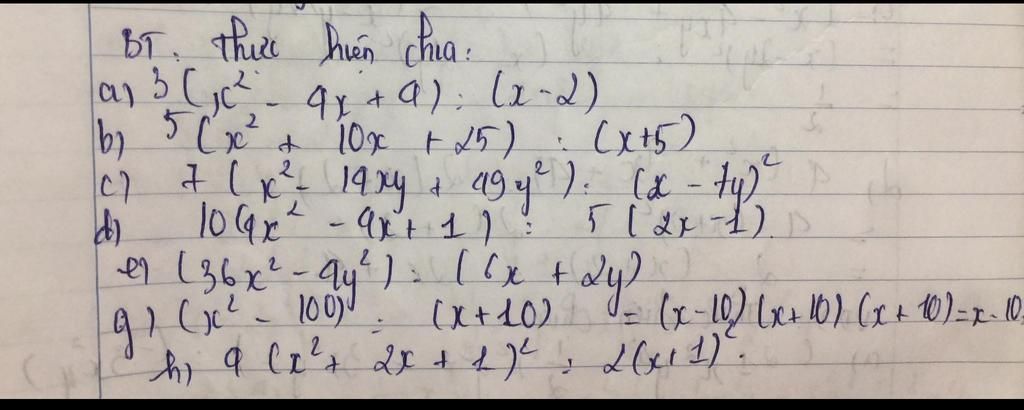 BT. Thực hiện chia:
a) 3 (x² - 4x + 4) : (x - 2)
b) 5 (x² + 10x + 25) : (x+5)
c) 7 (x² - 14xy + 49y²) : (x - 7y)²
d) 10(4x² - 4x + 1) : 5 (2x - 1).
e) (36x² - 4y²) : (6x + 2y)
g) (x² - 100) : (x + 10) = (x - 10) (x + 10) (x + 10) = x - 10.
h) 4 (x² + 2x + 1)² : 2(x+1)².